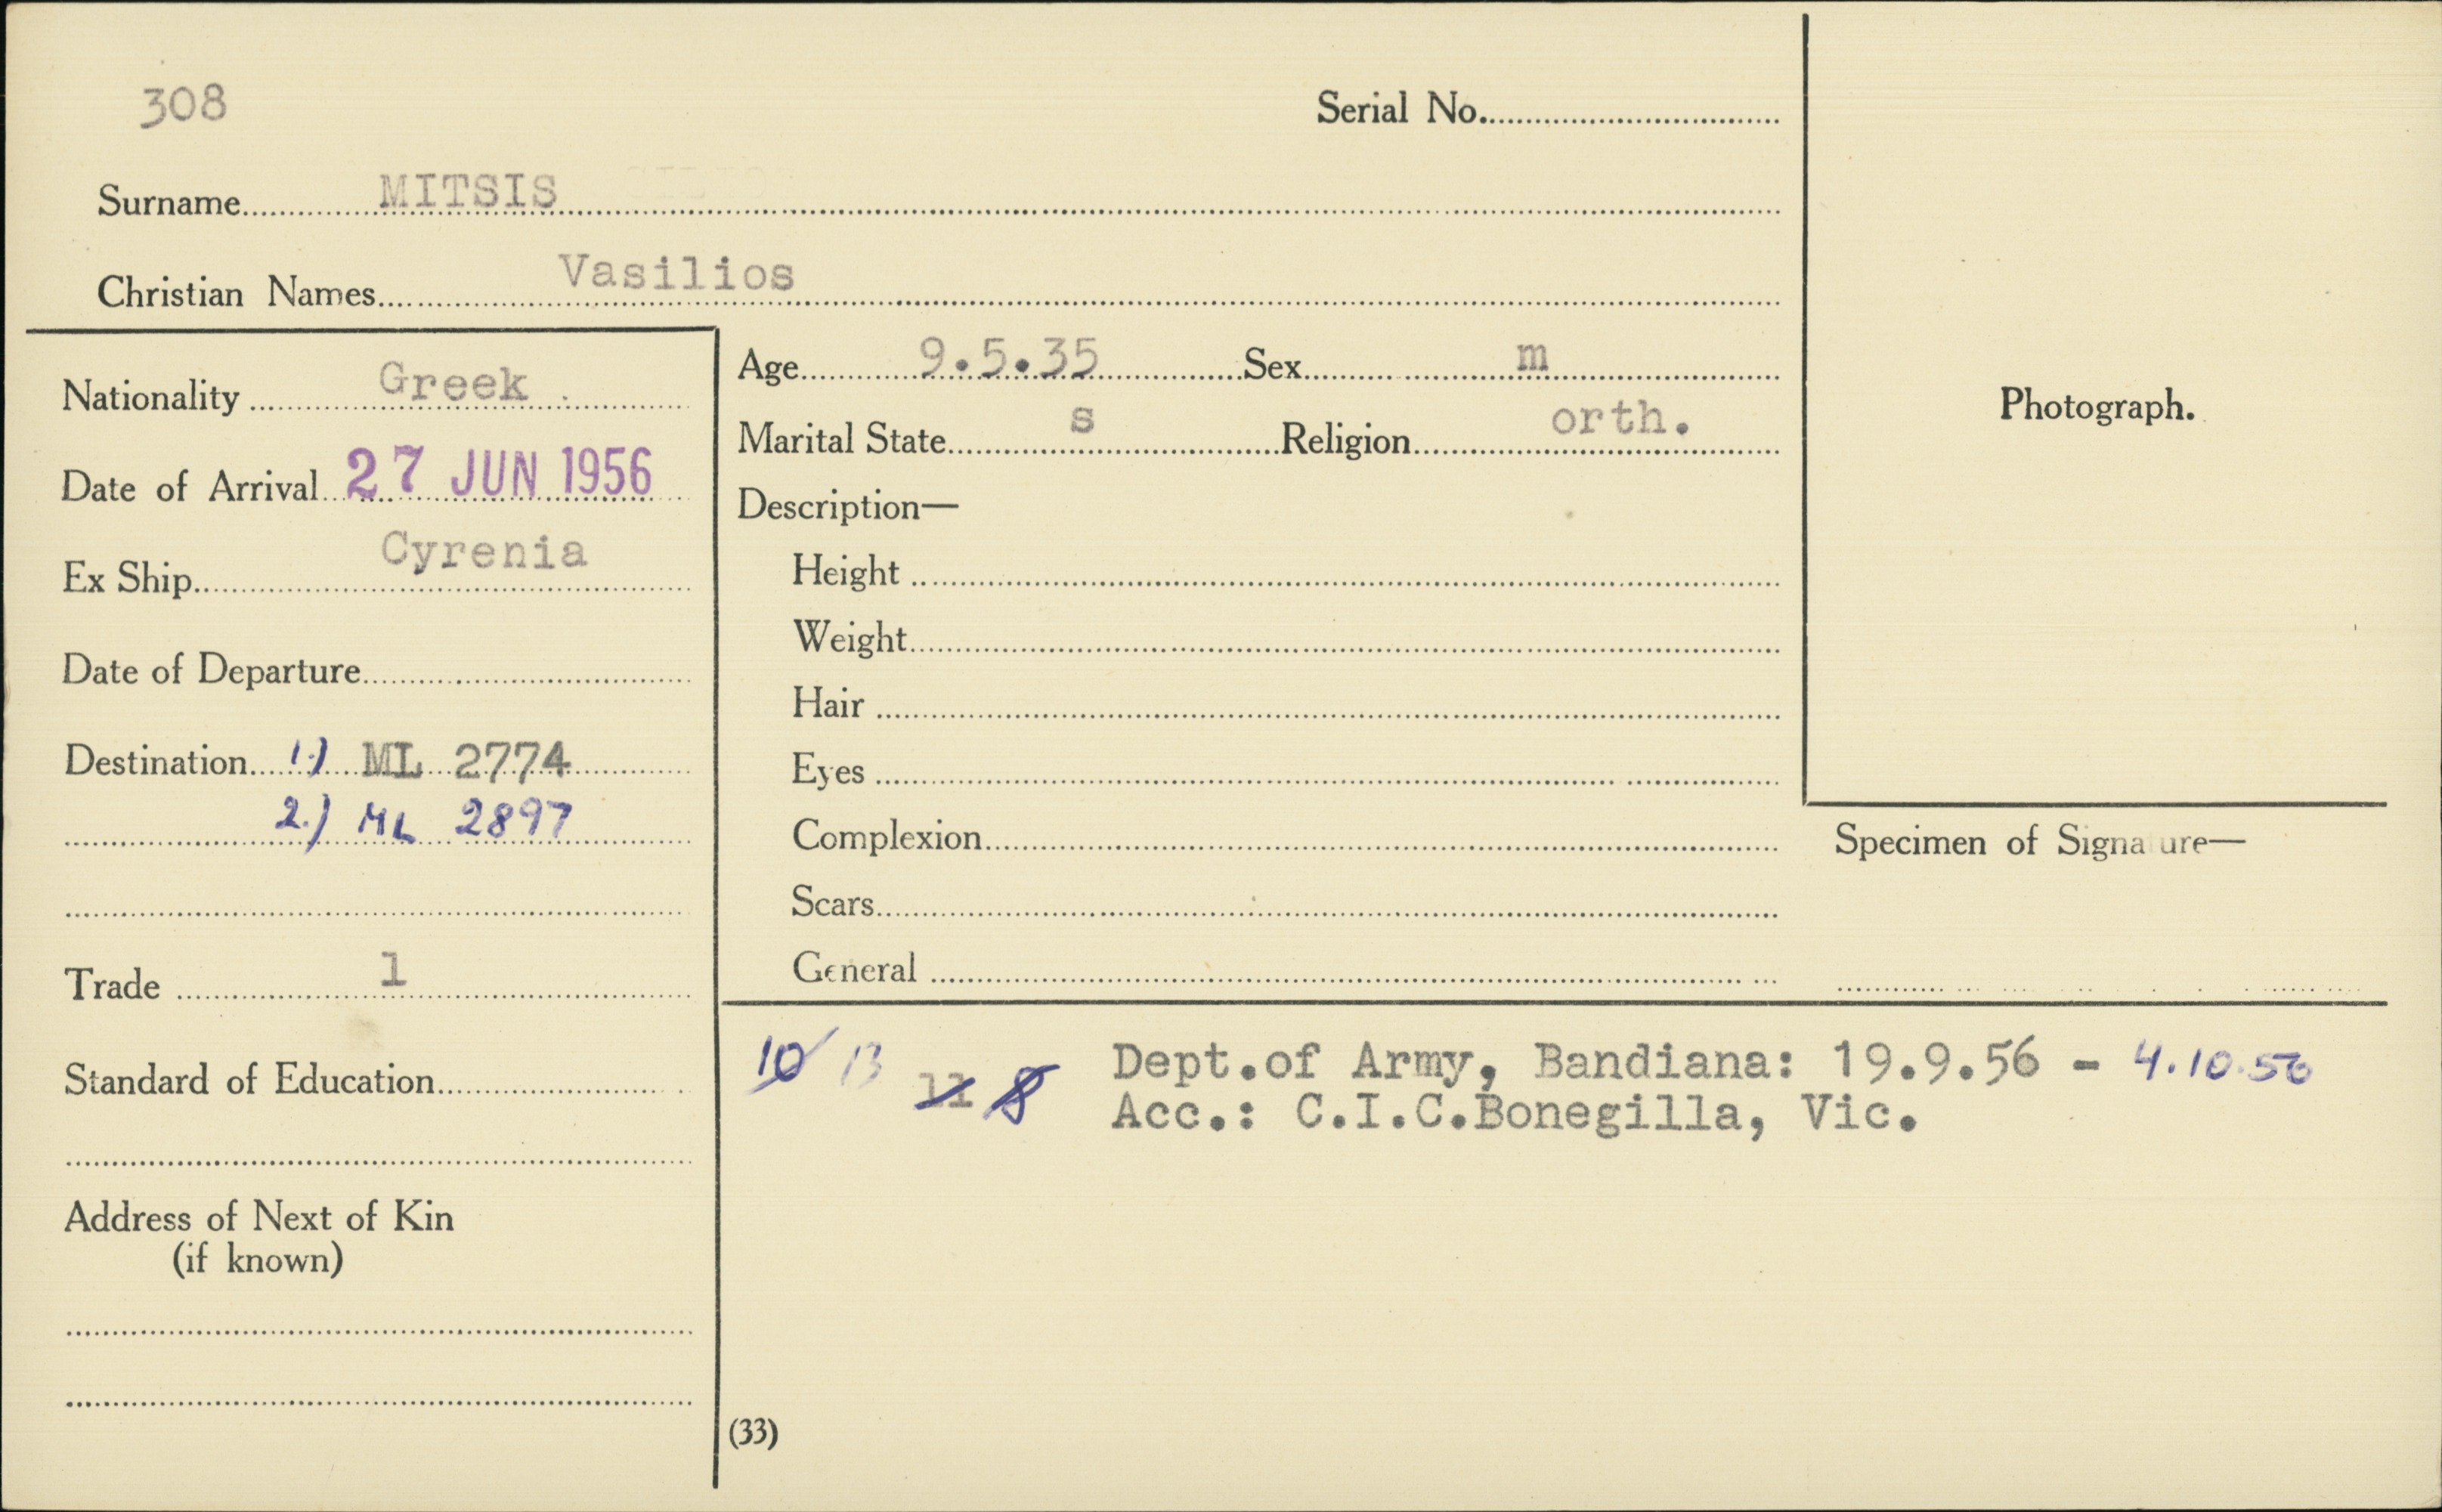 308
Serial No.
Surname MITSIS
Christian Names Vasilios
Nationality Greek
Date of Arrival 27 JUN 1956
Ex Ship Cyrenia
Date of Departure
Destination 1.) ML 2774
2.) ML 2897
Trade 1
Standard of Education
Address of Next of Kin
(if known)
Age 9.5.35 Sex m
Marital State s Religion orth.
Description—
Height
Weight
Hair
Eyes
Complexion
Scars
General
Photograph.
Specimen of Signature—
10 13 11 8 Dept.of Army, Bandiana: 19.9.56 - 4.10.56
Acc.: C.I.C.Bonegilla, Vic.
(33)